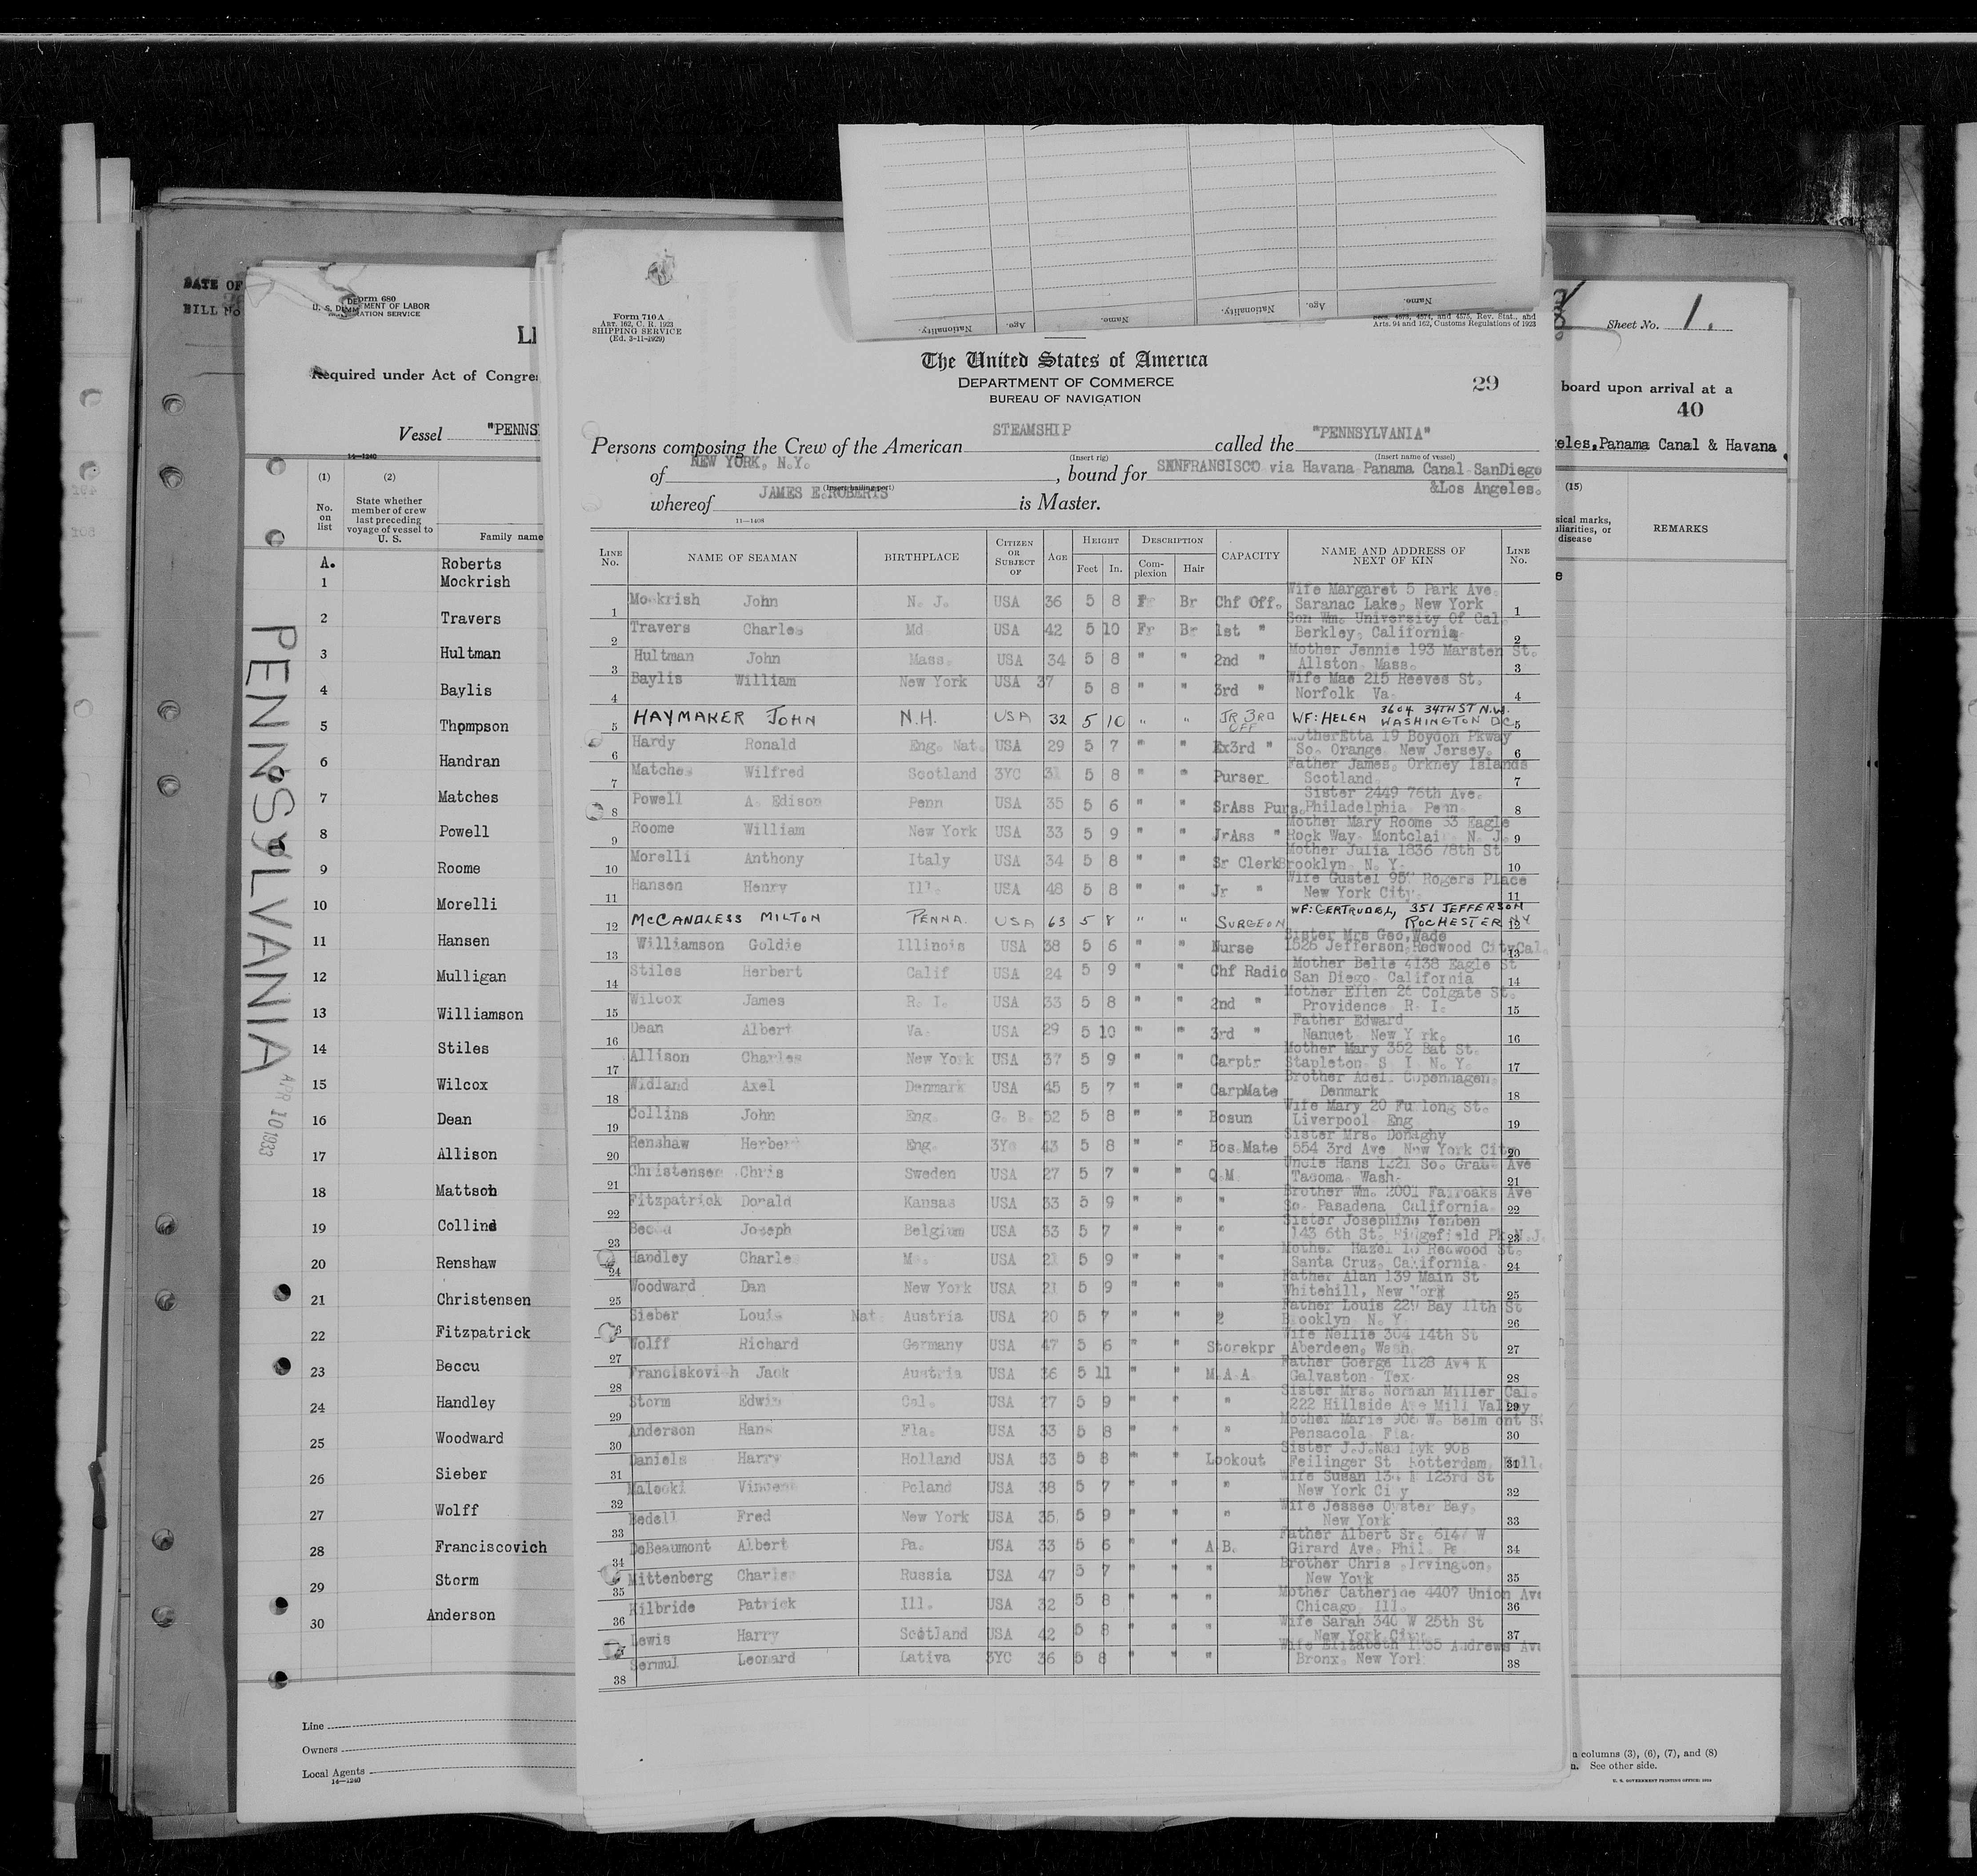 DATE OF
BILL No
Form 680
U. S. DEPARTMENT OF LABOR
IMMIGRATION SERVICE
LI
Required under Act of Congre
Vessel "PENNS
14—1240
(1) (2)
No. on list
State whether member of crew last preceding voyage of vessel to U. S.
Family name
A. Roberts
1 Mockrish
2 Travers
3 Hultman
4 Baylis
5 Thompson
6 Handran
7 Matches
8 Powell
9 Roome
10 Morelli
11 Hansen
12 Mulligan
13 Williamson
14 Stiles
15 Wilcox
16 Dean
17 Allison
18 Mattson
19 Collins
20 Renshaw
21 Christensen
22 Fitzpatrick
23 Beccu
24 Handley
25 Woodward
26 Sieber
27 Wolff
28 Franciscovich
29 Storm
30 Anderson
Line
Owners
Local Agents
14—1240
PENNSYLVANIA
APR 10 1933
Nationality. Age. Name. Nationality. Age. Name.
Form 710 A
ART. 162, C. R. 1923
SHIPPING SERVICE
(Ed. 3-11-1929)
Secs. 4573, 4574, and 4575, Rev. Stat., and
Arts. 94 and 162, Customs Regulations of 1923
The United States of America
DEPARTMENT OF COMMERCE
BUREAU OF NAVIGATION
29
Persons composing the Crew of the American STEAMSHIP called the "PENNSYLVANIA"
(Insert rig) (Insert name of vessel)
of NEW YORK, N.Y. , bound for SENFRANSISCO via Havana Panama Canal SanDiego
(Insert hailing port) &Los Angeles.
whereof JAMES E.ROBERTS is Master.
11—1408
LINE No. NAME OF SEAMAN BIRTHPLACE CITIZEN OR SUBJECT OF AGE HEIGHT Feet In. DESCRIPTION Complexion Hair CAPACITY NAME AND ADDRESS OF NEXT OF KIN LINE No.
1 Mockrish John N. J. USA 36 5 8 Fr Br Chf Off. Wife Margaret 5 Park Ave. Saranac Lake, New York 1
2 Travers Charles Md USA 42 5 10 Fr Br 1st " Son Wm. University Of Cal. Berkley, California 2
3 Hultman John Mass. USA 34 5 8 " " 2nd " Mother Jennie 193 Marsten St. Allston Mass. 3
4 Baylis William New York USA 37 5 8 " " 3rd " Wife Mae 215 Reeves St. Norfolk Va. 4
5 HAYMAKER JOHN N.H. USA 32 5 10 " " JR 3RD OFF WF: HELEN 3604 34TH ST N.W. WASHINGTON DC 5
6 Hardy Ronald Eng. Nat. USA 29 5 7 " " Ex3rd " MotherEtta 19 Boydon Pkway So. Orange New Jersey. 6
7 Matches Wilfred Scotland 3YC 31 5 8 " " Purser Father James, Orkney Islands Scotland 7
8 Powell A. Edison Penn USA 35 5 6 " " SrAss Purs. Sister 2449 76th Ave. Philadelphia Penn 8
9 Roome William New York USA 33 5 9 " " JrAss " Mother Mary Roome 33 Eagle Rock Way Montclair N. J. 9
10 Morelli Anthony Italy USA 34 5 8 " " Sr Clerk Mother Julia 1836 78th St Brooklyn N. Y. 10
11 Hansen Henry Ill. USA 48 5 8 " " Jr " Wife Gustel Rogers Place New York City 11
12 McCANDLESS MILTON PENNA. USA 63 5 8 " " SURGEON WF: GERTRUDE L, 351 JEFFERSON ROCHESTER NY 12
13 Williamson Goldie Illinois USA 38 5 6 " " Nurse Sister Mrs Geo.Wade 1526 Jefferson,Redwood City,Cal. 13
14 Stiles Herbert Calif USA 24 5 9 " " Chf Radio Mother Belle 4138 Eagle St San Diego California 14
15 Wilcox James R. I. USA 33 5 8 " " 2nd " Mother Ellen 26 Colgate St. Providence R. I. 15
16 Dean Albert Va. USA 29 5 10 " " 3rd " Father Edward Nanuet New York. 16
17 Allison Charles New York USA 37 5 9 " " Carptr Mother Mary 352 Bat St. Stapleton S I N. Y. 17
18 Widland Axel Denmark USA 45 5 7 " " CarpMate Brother Copenhagen, Denmark 18
19 Collins John Eng. G. B. 52 5 8 " " Bosun Wife Mary 20 Furlong St. Liverpool Eng 19
20 Renshaw Herbert Eng. 3Yc 43 5 8 " " Bos.Mate Sister Mrs. Donaghy 554 3rd Ave New York City 20
21 Christensen Chris Sweden USA 27 5 7 " " Q.M. Uncle Hans 1221 So. Grant Ave Tacoma Wash. 21
22 Fitzpatrick Donald Kansas USA 33 5 9 " " " Brother Wm. 2001 Fairoaks Ave So. Pasadena California 22
23 Beccu Joseph Belgium USA 33 5 7 " " " Sister Josephine Yenben 143 6th St. Ridgefield Pk N.J. 23
24 Handley Charles USA 21 5 9 " " " Mother Hazel Redwood St. Santa Cruz, California 24
25 Woodward Dan New York USA 21 5 9 " " " Father Alan 139 Main St Whitehill, New York 25
26 Sieber Louis Nat. Austria USA 20 5 7 " " Father Louis 229 Bay 11th St Brooklyn N. Y 26
27 Wolff Richard Germany USA 47 5 6 " " Storekpr Wife Nellie 304 14th St Aberdeen, Wash. 27
28 Franciskovich Jack Austria USA 36 5 11 " " M.A.A. Father Goerge 1128 Ave K Galvaston Tex. 28
29 Storm Edwin Cal. USA 27 5 9 " " " Sister Mrs. Norman Miller Cal. 222 Hillside Ave Mill Valley 29
30 Anderson Hans Fla. USA 33 5 8 " " " Mother Marie 906 W. Belmont St Pensacola Fla. 30
31 Daniels Harry Holland USA 53 5 8 " " Lookout Sister Feilinger St Rotterdam, Holl. 31
32 Malecki Vincent Poland USA 38 5 7 " " " Wife Susan 123rd St New York City 32
33 Bedell Fred New York USA 35 5 9 " " " Wife Jessee Oyster Bay, New York 33
34 DeBeaumont Albert Pa. USA 33 5 6 " " A.B. Father Albert Sr. 6147 W Girard Ave. Phil. Pa 34
35 Mittenberg Charles Russia USA 47 5 7 " " " Brother Chris , Irvington, New York 35
36 Kilbride Patrick Ill. USA 32 5 8 " " " Mother Catherine 4407 Union Ave Chicago Ill. 36
Lewis Harry Scotland USA 42 5 8 " " " Wife Sarah 340 W 25th St New York City 37
38 Sermul Leonard Lativa 3YC 36 5 8 " " " Wife Elizabeth Andrews Ave Bronx New York 38
Sheet No. 1.
board upon arrival at a
40
eles,Panama Canal & Havana
(15)
sical marks,
uliarities, or
disease
REMARKS
n columns (3), (6), (7), and (8)
n. See other side.
U. S. GOVERNMENT PRINTING OFFICE